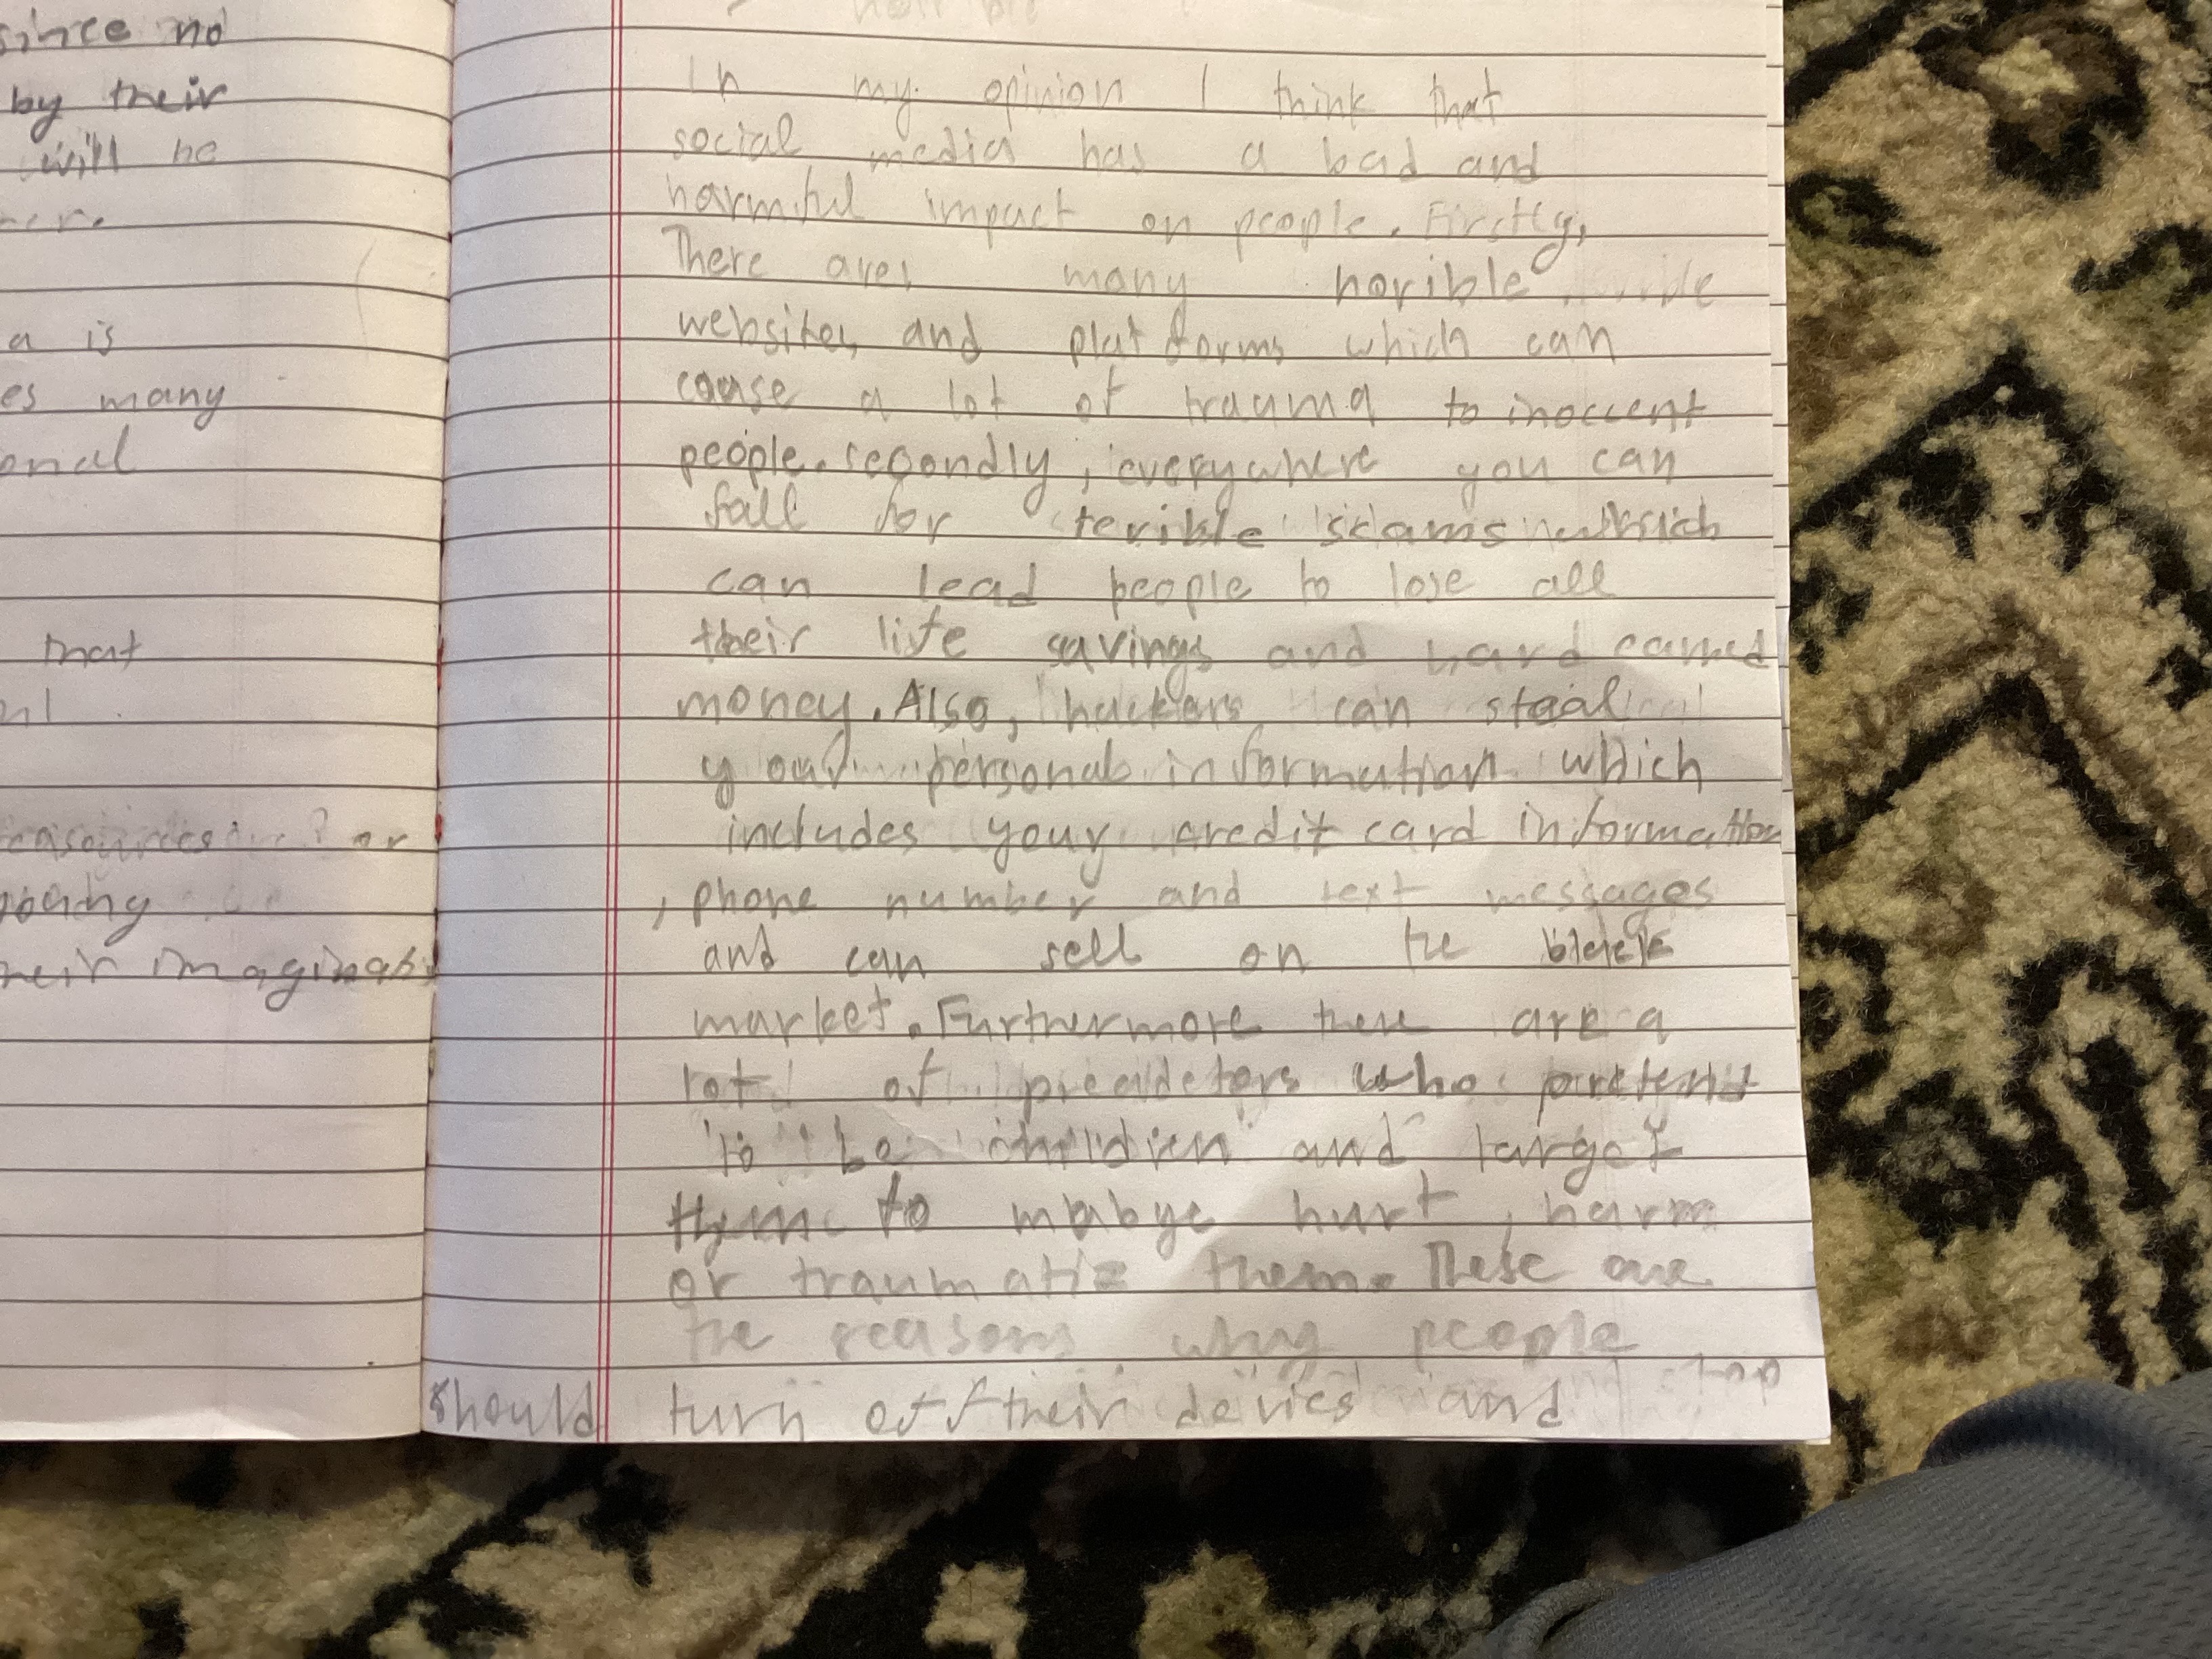 since no
by their
will be
a is
es many
onal
that
or
their imaginati
In my opinion I think that
social media has a bad and
harmful impact on people. Firstly,
There are many horible
websites and platforms which can
cause a lot of trauma to inoccent
people. secondly, everywhere you can
fall for terible scams which
can lead people to lose all
their life savings and hard earned
money. Also, hackers can steal
your personal information which
includes your credit card information
, phone number and text messages
and can sell on the black
market. Furthermore there are a
lot of predetors who pretend
to be children and target
them to mabye hurt, harm
or traumatiz them. These are
the reasons why people
should turn off their devices and stop